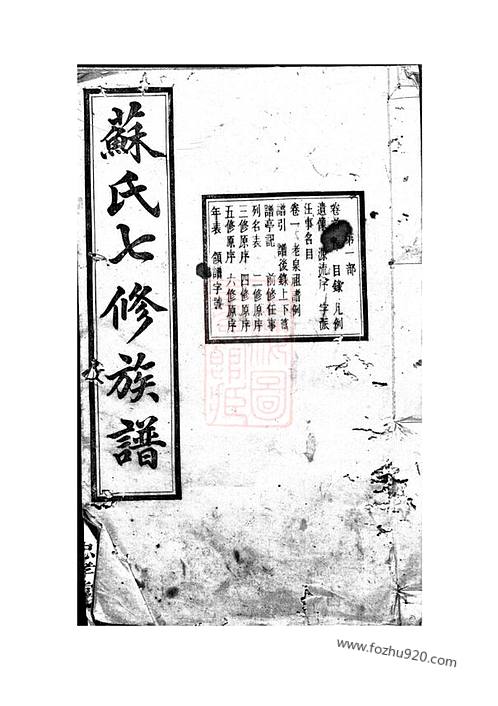 蘇氏七修族譜
卷首 第一部
目錄 凡例
遺像 源流序 字派
任事名目
卷一 老泉祖譜例
譜引 譜後錄上下篇
譜亭記 前修任事
列名表 二修原序
三修原序 四修原序
五修原序 六修原序
年表 領譜字號
www.fozhu920.com